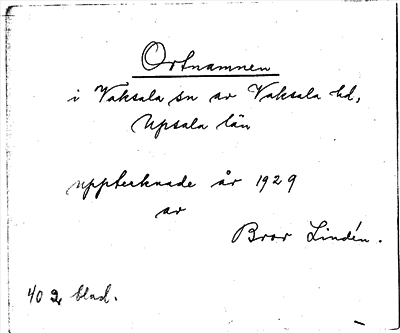 Ortnamnen
i Vaksala sn av Vaksala hd,
Upsala län
upptecknade år 1929
av
Bror Lindén.
402 blad.